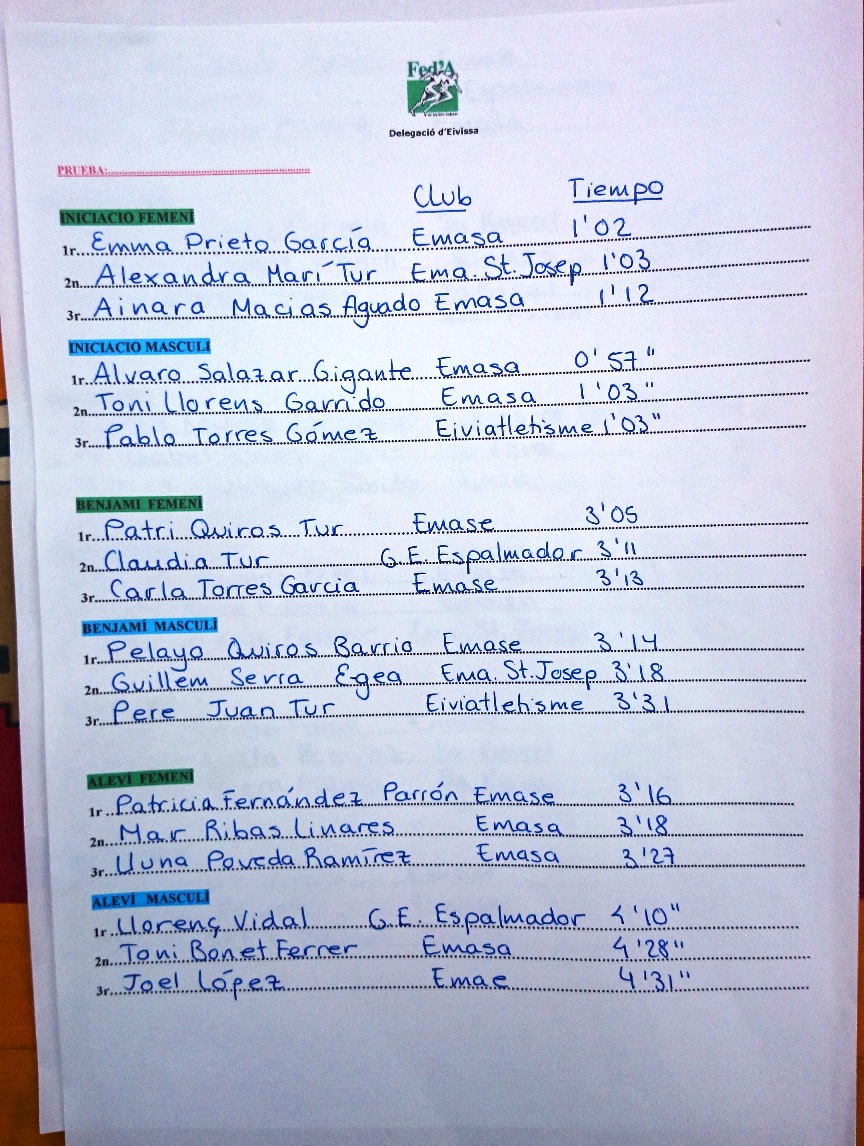 Fed'A
Delegació d'Eivissa
PRUEBA:
Club Tiempo
INICIACIO FEMENÍ
1r... Emma Prieto García Emasa 1'02
2n... Alexandra Marí Tur Ema. St. Josep 1'03
3r... Ainara Macias Aguado Emasa 1'12
INICIACIO MASCULÍ
1r... Alvaro Salazar Gigante Emasa 0'57"
2n... Toni Llorens Garrido Emasa 1'03"
3r... Pablo Torres Gómez Eiviatletisme 1'03"
BENJAMÍ FEMENÍ
1r... Patri Quiros Tur Emase 3'05
2n... Claudia Tur G.E. Espalmador 3'11
3r... Carla Torres Garcia Emase 3'13
BENJAMÍ MASCULÍ
1r... Pelayo Quiros Barrio Emase 3'14
2n... Guillem Serra Egea Ema. St. Josep 3'18
3r... Pere Juan Tur Eiviatletisme 3'31
ALEVÍ FEMENÍ
1r... Patricia Fernández Parrón Emase 3'16
2n... Mar Ribas Linares Emasa 3'18
3r... Lluna Poveda Ramírez Emasa 3'27
ALEVÍ MASCULÍ
1r... Llorenç Vidal G.E. Espalmador 4'10"
2n... Toni Bonet Ferrer Emasa 4'28"
3r... Joel López Emae 4'31"